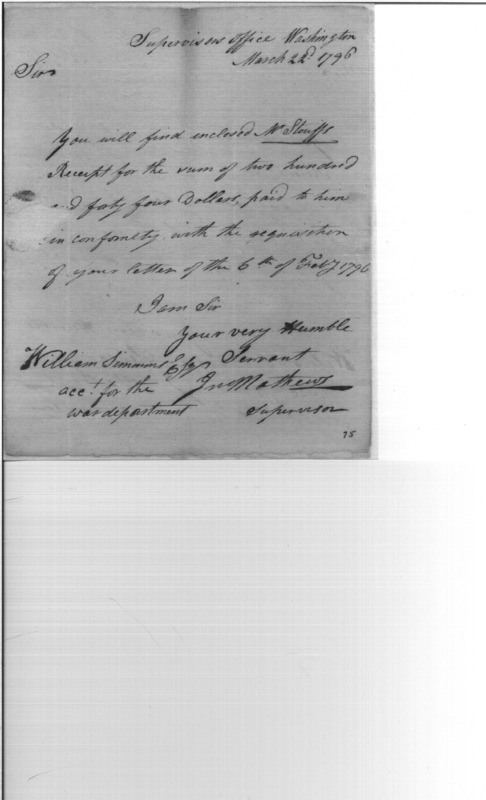 Supervisors office Washington
March 22d. 1796
Sir
You will find enclosed Mr Stouffs
Receipt for the sum of two hundred
and forty four Dollars, paid to him
in confomety with the requisition
of your letter of the 6th of Feby 1796
I am Sir
Your very Humble
Servant
William Simmons Esqr
acct. for the
war department
Jno Mathews
Supervisor
75